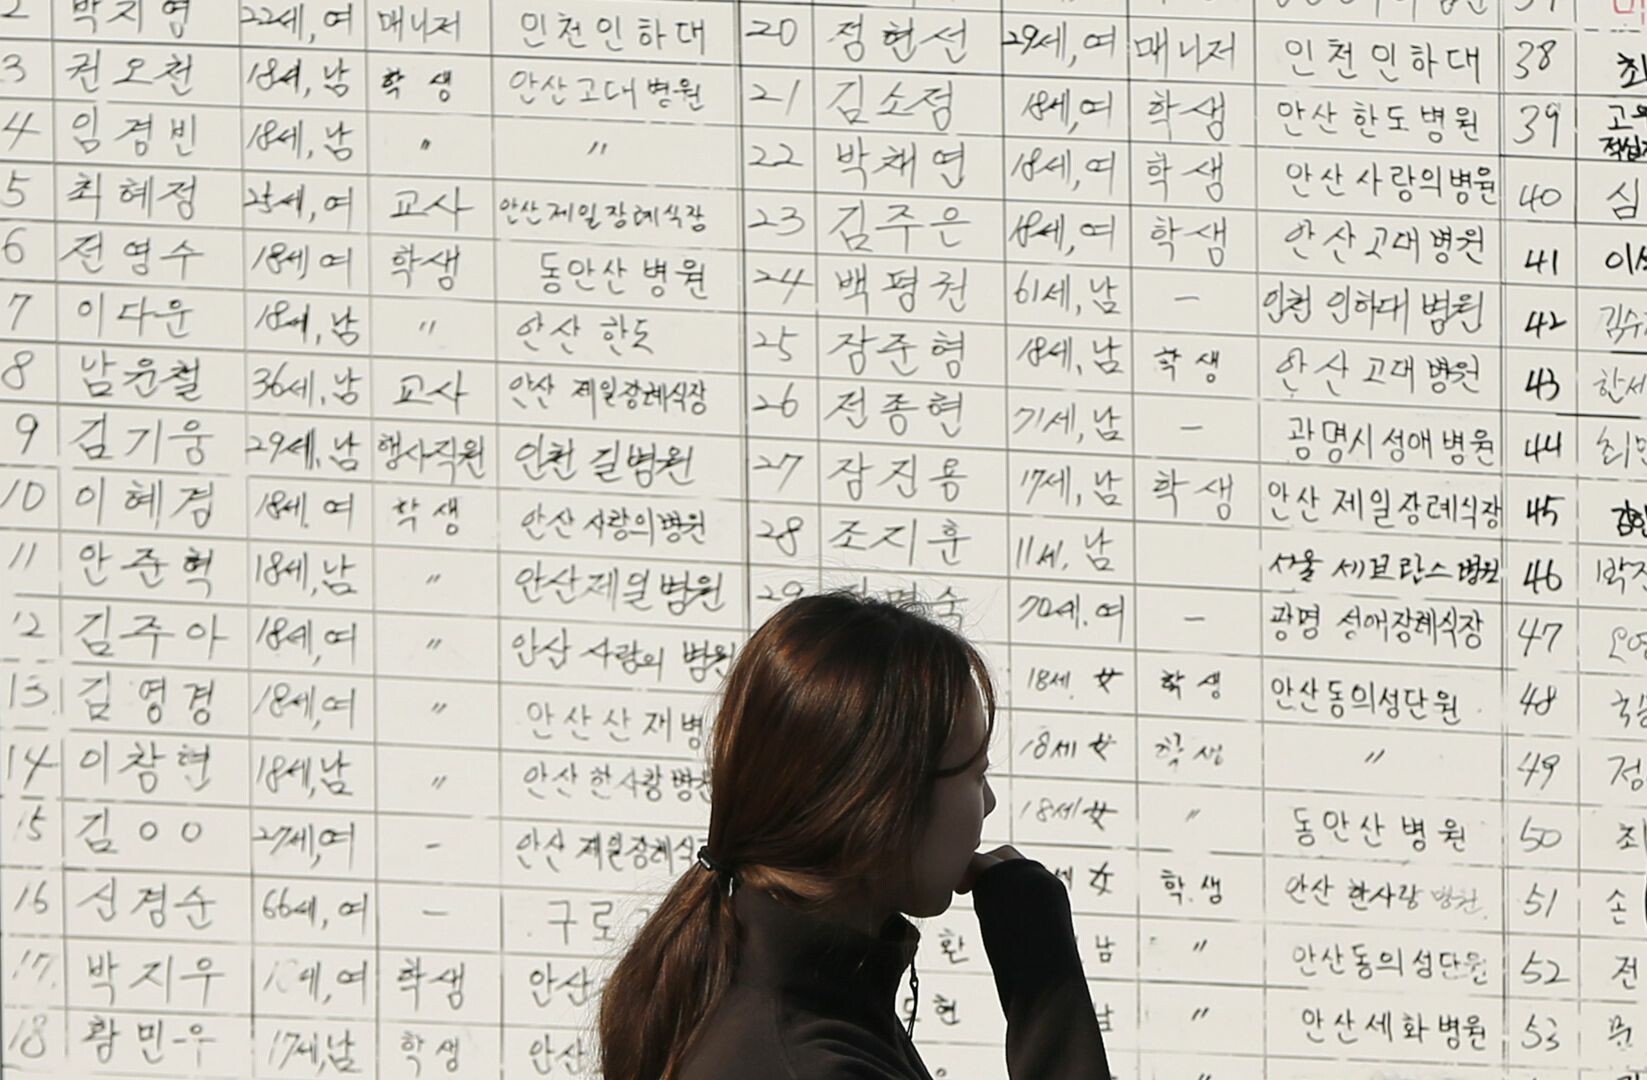 2 박지영 22세, 여 매니저 인천인하대
3 권오천 18세, 남 학생 안산고대병원
4 임경빈 18세, 남 〃 〃
5 최혜정 25세, 여 교사 안산제일장례식장
6 전영수 18세 여 학생 동안산병원
7 이다운 18세, 남 〃 안산 한도
8 남윤철 36세, 남 교사 안산 제일장례식장
9 김기웅 29세, 남 행사직원 인천 길병원
10 이혜경 18세. 여 학생 안산사랑의병원
11 안준혁 18세, 남 〃 안산제일병원
12 김주아 18세, 여 〃 안산 사랑의 병원
13 김영경 18세, 여 〃 안산산재병
14 이창현 18세, 남 〃 안산 한사랑병원
15 김○○ 27세, 여 - 안산 제일장례식
16 신경순 66세, 여 - 구로
17. 박지우 세, 여 학생 안산
18 황민우 17세, 남 학생 안산
20 정현선 29세, 여 매니저 인천인하대
21 김소정 18세, 여 학생 안산한도병원
22 박채연 18세, 여 학생 안산사랑의병원
23 김주은 18세, 여 학생 안산고대병원
24 백평권 61세, 남 - 인천 인하대 병원
25 장준형 18세, 남 학생 안산고대병원
26 전종현 71세, 남 - 광명시성애병원
27 장진용 17세, 남 학생 안산제일장례식장
28 조지훈 11세, 남 서울 세브란스병원
29 숙 70세. 여 - 광명 성애장례식장
18세. 女 학생 안산동의성단원
18세 女 학생 〃
18세 女 〃 동안산병원
세 女 학생 안산 한사랑병원
환 남 〃 안산동의성단원
현 남 〃 안산세화병원
38 최
39 고
40 심
41 이
42 김수
43 한세
44 최민
45
46 박
47 오영
48
49 정
50 최
51 손
52 전
53